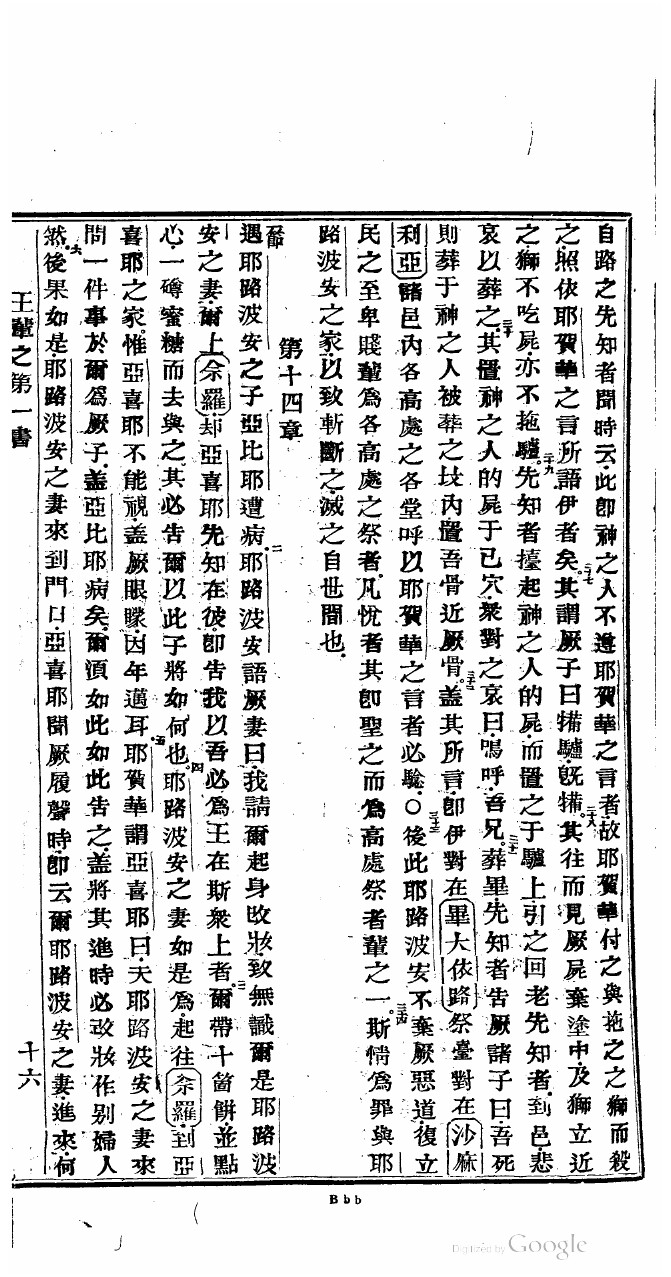 自路之先知者聞時云此卽神之人不遵耶賀華之言者故耶賀華付之與拖之之獅而殺
之照依耶賀華之言所語伊者矣二十七其謂厥子曰犕驢旣犕二十八其往而見厥屍棄塗中及獅立近
之獅不吃屍亦不拖驢二十九先知者擡起神之人的屍而置之于驢上引之回老先知者到邑悲
哀以葬之三十其置神之人的屍于己穴衆對之哀曰嗚呼吾兄三十一葬畢先知者告厥諸子曰吾死
則葬于神之人被葬之坟內置吾骨近厥骨三十二盖其所言卽伊對在畢大依路祭臺對在沙麻
利亞諸邑內各高處之各堂呼以耶賀華之言者必驗〇三十三後此耶路波安不棄厥惡道復立
民之至卑賤輩爲各高處之祭者凡悅者其卽聖之而爲高處祭者輩之一三十四斯情爲罪與耶
路波安之家以致斬斷之滅之自世間也
第十四章
遇耶路波安之子亞比耶遭病二耶路波安語厥妻曰我請爾起身改妝致無識爾是耶路波
安之妻爾上佘羅却亞喜耶先知在彼卽告我以吾必爲王在斯衆上者三爾帶十箇餅並點
心一罇蜜糖而去與之其必告爾以此子將如何也四耶路波安之妻如是爲起往佘羅到亞
喜耶之家惟亞喜耶不能視盖厥眼矇因年邁耳五耶賀華謂亞喜耶曰夭耶路波安之妻來
問一件事於爾爲厥子盖亞比耶病矣爾湏如此如此告之盖將其進時必改妝作别婦人
六然後果如是耶路波安之妻來到門口亞喜耶聞厥履聲時卽云爾耶路波安之妻進來何
王輩之第一書
十六
Bbb
Digitized by Google